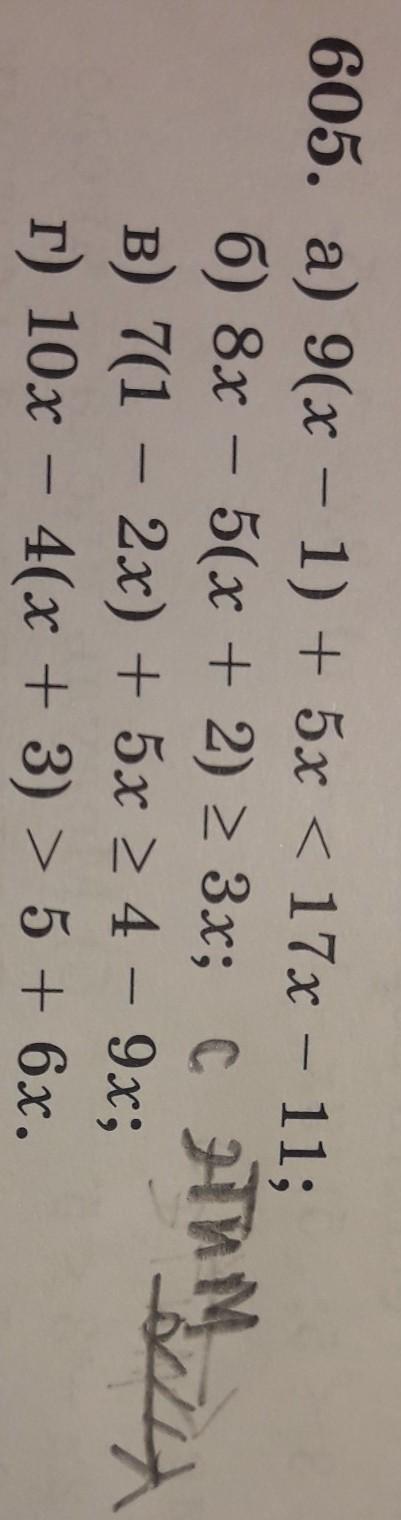 605. а) 9(x − 1) + 5x < 17x − 11;
б) 8x − 5(x + 2) ≥ 3x; С этим
в) 7(1 − 2x) + 5x ≥ 4 − 9x;
г) 10x − 4(x + 3) > 5 + 6x.